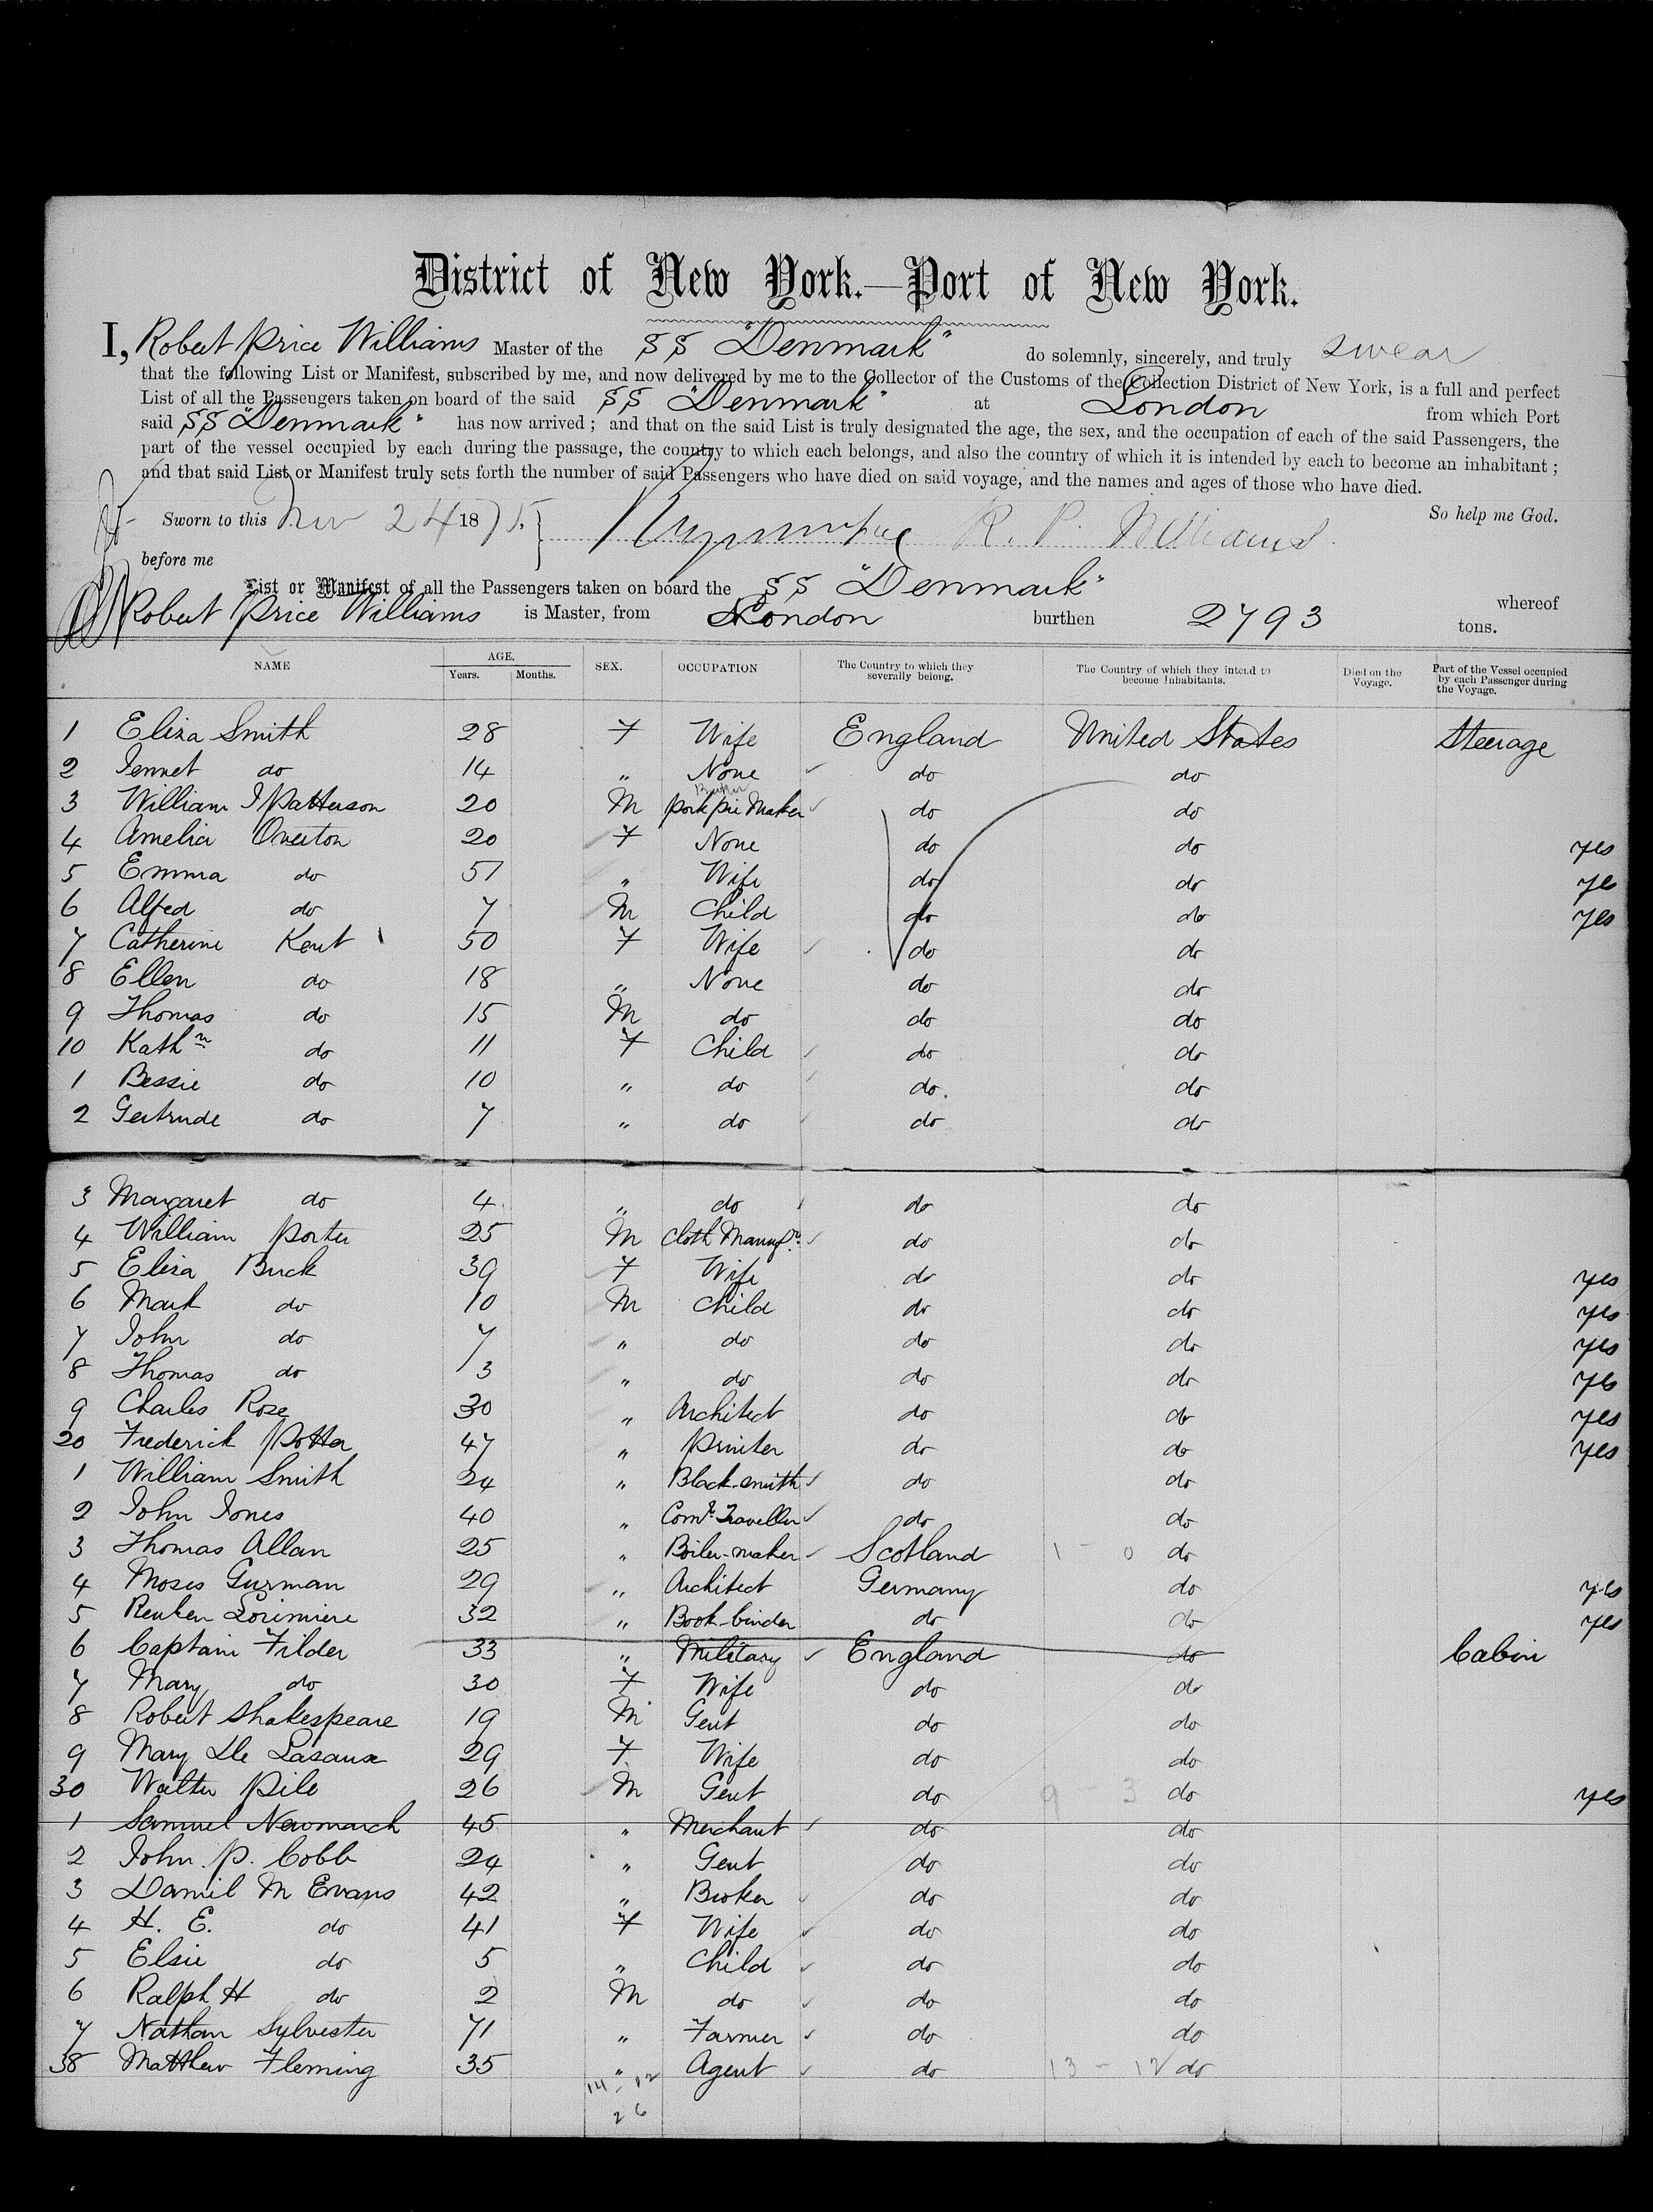 District of New York.—Port of New York.
I, Robert Price Williams Master of the SS "Denmark" do solemnly, sincerely, and truly swear
that the following List or Manifest, subscribed by me, and now delivered by me to the Collector of the Customs of the Collection District of New York, is a full and perfect
List of all the Passengers taken on board of the said SS "Denmark" at London from which Port
said SS "Denmark" has now arrived; and that on the said List is truly designated the age, the sex, and the occupation of each of the said Passengers, the
part of the vessel occupied by each during the passage, the country to which each belongs, and also the country of which it is intended by each to become an inhabitant;
and that said List or Manifest truly sets forth the number of said Passengers who have died on said voyage, and the names and ages of those who have died.
Sworn to this Nov 24 1875. R. P. Williams So help me God.
before me
List or Manifest of all the Passengers taken on board the SS "Denmark" whereof
Robert Price Williams is Master, from London burthen 2793 tons.
NAME AGE. Years. Months. SEX. OCCUPATION The Country to which they severally belong. The Country of which they intend to become Inhabitants. Died on the Voyage. Part of the Vessel occupied by each Passenger during the Voyage.
1 Eliza Smith 28 F Wife England United States Steerage
2 Jennet do 14 " None do do
3 William J Patterson 20 M Pork pie Maker do do
4 Amelia Overton 20 F None do do yes
5 Emma do 51 " Wife do do yes
6 Alfed do 7 M Child do do yes
7 Catherine Kent 50 F Wife do do
8 Ellen do 18 " None do do
9 Thomas do 15 M do do do
10 Kathn do 11 F Child do do
1 Bessie do 10 " do do. do
2 Gertrude do 7 " do do do
3 Margaret do 4 " do do do
4 William Porter 25 M Cloth Manufr. do do
5 Eliza Buck 39 F Wife do do yes
6 Mark do 10 M Child do do yes
7 John do 7 " do do do yes
8 Thomas do 3 " do do do yes
9 Charles Rose 30 " Architect do do yes
20 Frederick Potter 47 " Printer do do yes
1 William Smith 24 " Black-smith do do
2 John Jones 40 " Coml. Traveller do do
3 Thomas Allan 25 " Boiler-maker Scotland 1 - 0 do
4 Moses Gurman 29 " Architect Germany do yes
5 Reuben Lorimiere 32 " Book-binder do do yes
6 Captain Filder 33 " Military England do Cabin
7 Mary do 30 F Wife do do
8 Robert Shakespeare 19 M Gent do do
9 Mary De Lasaux 29 F Wife do do
30 Walter Pile 26 M Gent do 9 - 3 do yes
1 Samuel Newmarch 45 " Merchant do do
2 John. P. Cobb 24 " Gent do do
3 Daniel M Evans 42 " Broker do do
4 H. E. do 41 F Wife do do
5 Elsie do 5 " Child do do
6 Ralph H do 2 M do do do
7 Nathan Sylvester 71 " Farmer do do
38 Matthew Fleming 35 " Agent do 13 - 12 do
14 - 12
26